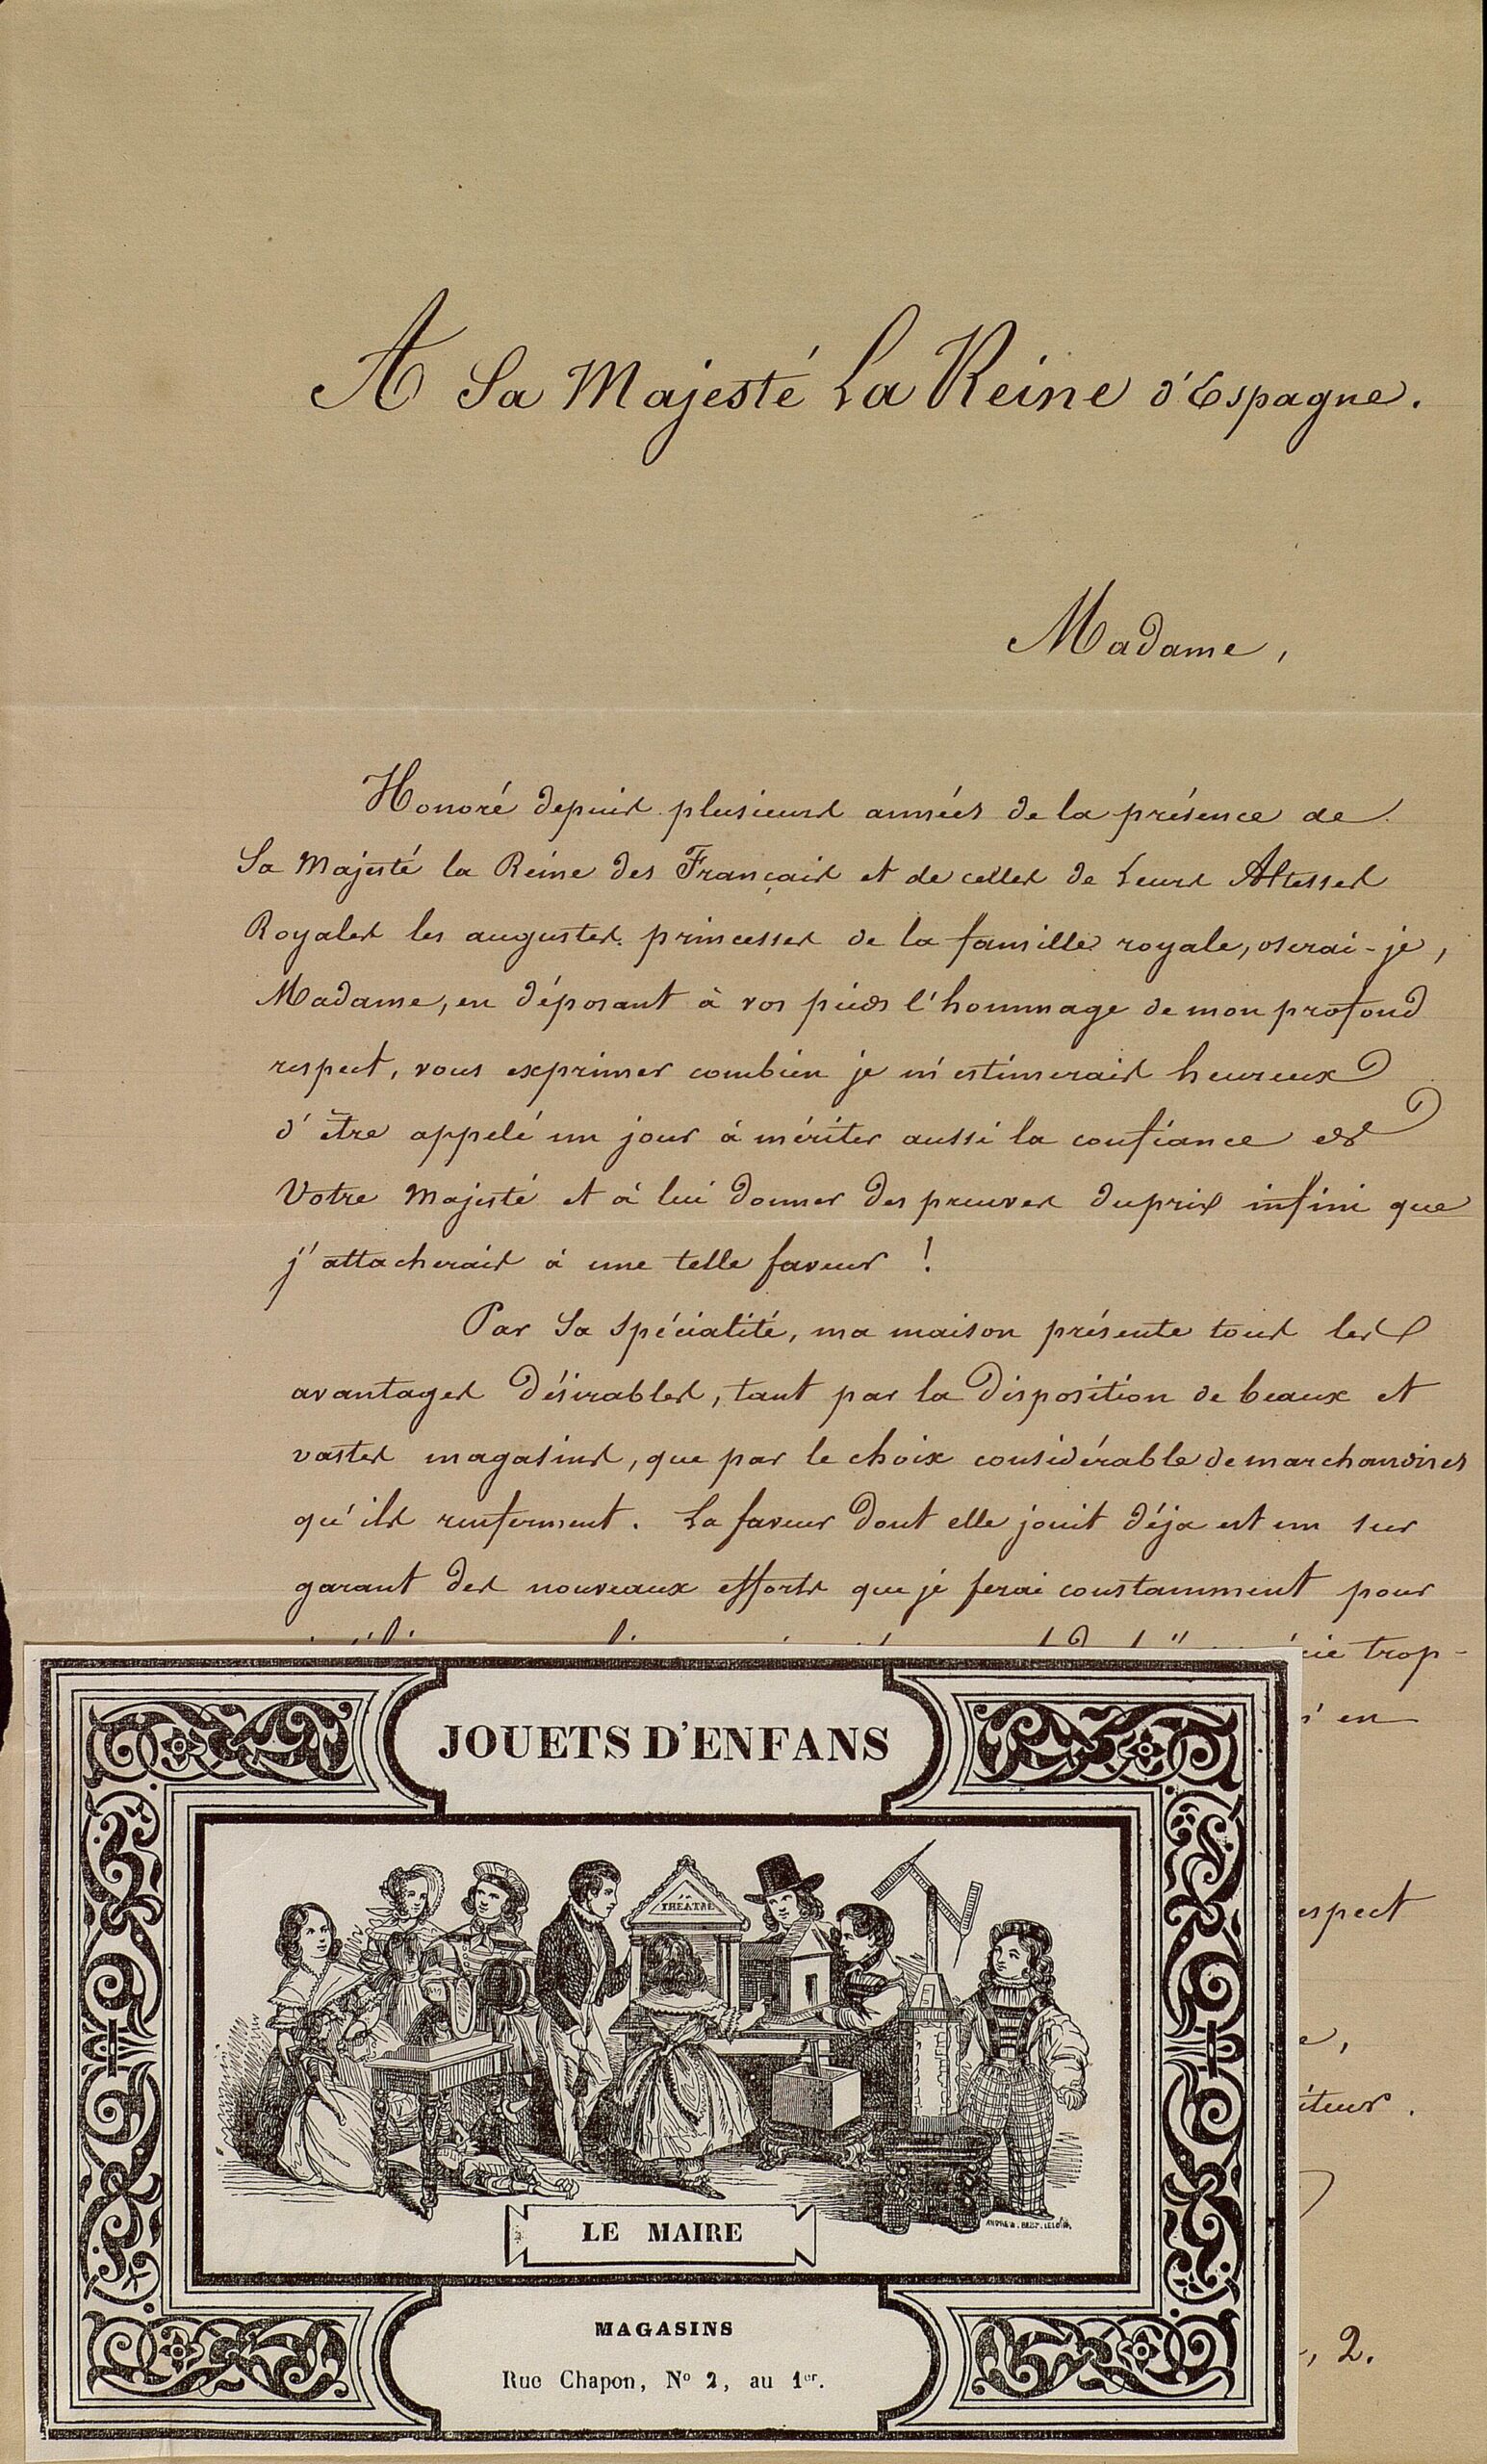 A Sa Majesté La Reine d'Espagne.
Madame,
Honoré depuis plusieurs années de la présence de
Sa Majesté la Reine des Français et de celles de Leurs Altesses
Royales les augustes princesses de la famille royale, oserai-je,
Madame, en déposant à vos pieds l'hommage de mon profond
respect, vous exprimer combien je m'estimerais heureux
d'être appelé un jour à mériter aussi la confiance de
Votre Majesté et à lui donner des preuves du prix infini que
j'attacherais à une telle faveur !
Par Sa Spécialité, ma maison présente tous les
avantages désirables, tant par la disposition de beaux et
vastes magasins, que par le choix considérable de marchandises
qu'ils renferment. La faveur dont elle jouit déja est un sur
garant des nouveaux efforts que je ferai constamment pour
trop
s'en
espect
e,
iteur.
, 2.
JOUETS D'ENFANS
THÉATRE
LE MAIRE
ANDREW. BEST. LELOIR.
MAGASINS
Rue Chapon, Nº 2, au 1er.